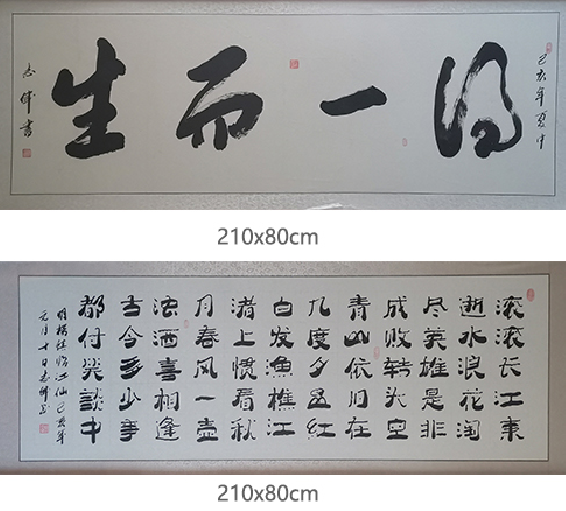 己亥年夏中
得一而生
志偉書
210x80cm
滚滚长江東
逝水浪花淘
尽英雄是非
成败转头空
青山依旧在
几度夕阳红
白发渔樵江
渚上惯看秋
月春风一壶
浊酒喜相逢
古今多少事
都付笑談中
明楊慎临江仙己亥年
元月十日志偉書
210x80cm